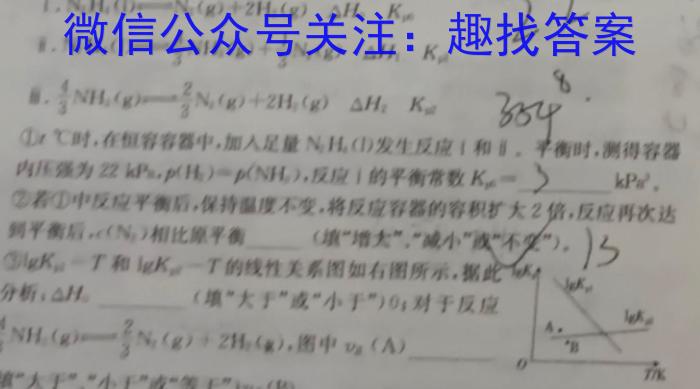 ⅰ. N₂H₄(l)══N₂(g)+2H₂(g) ΔH K
微信公众号关注：趣找答案
ⅱ.
ⅲ. 4/3 NH₃(g)══2/3 N₂(g)+2H₂(g) ΔH₂ Kp2
334 8.
①t ℃时,在恒容容器中,加入足量 N₂H₄(l)发生反应ⅰ和ⅱ。平衡时,测得容器
内压强为 22 kPa,p(H₂)=p(NH₃),反应ⅰ的平衡常数 Kp0=______kPa³。
②若①中反应平衡后,保持温度不变,将反应容器的容积扩大 2 倍,反应再次达
到平衡后,c(N₂)相比原平衡____(填“增大”、“减小”或“不变”)。
③lgKp1-T 和 lgKp2-T 的线性关系图如右图所示,据此
分析:ΔH₀______(填“大于”或“小于”)0;对于反应
4/3 NH₃(g)══2/3 N₂(g)+2H₂(g),图中 v正(A)______
填“大于”、“小于”或“等于”)
lgK
lgKp1
lgKp2
A
B
O
T/K